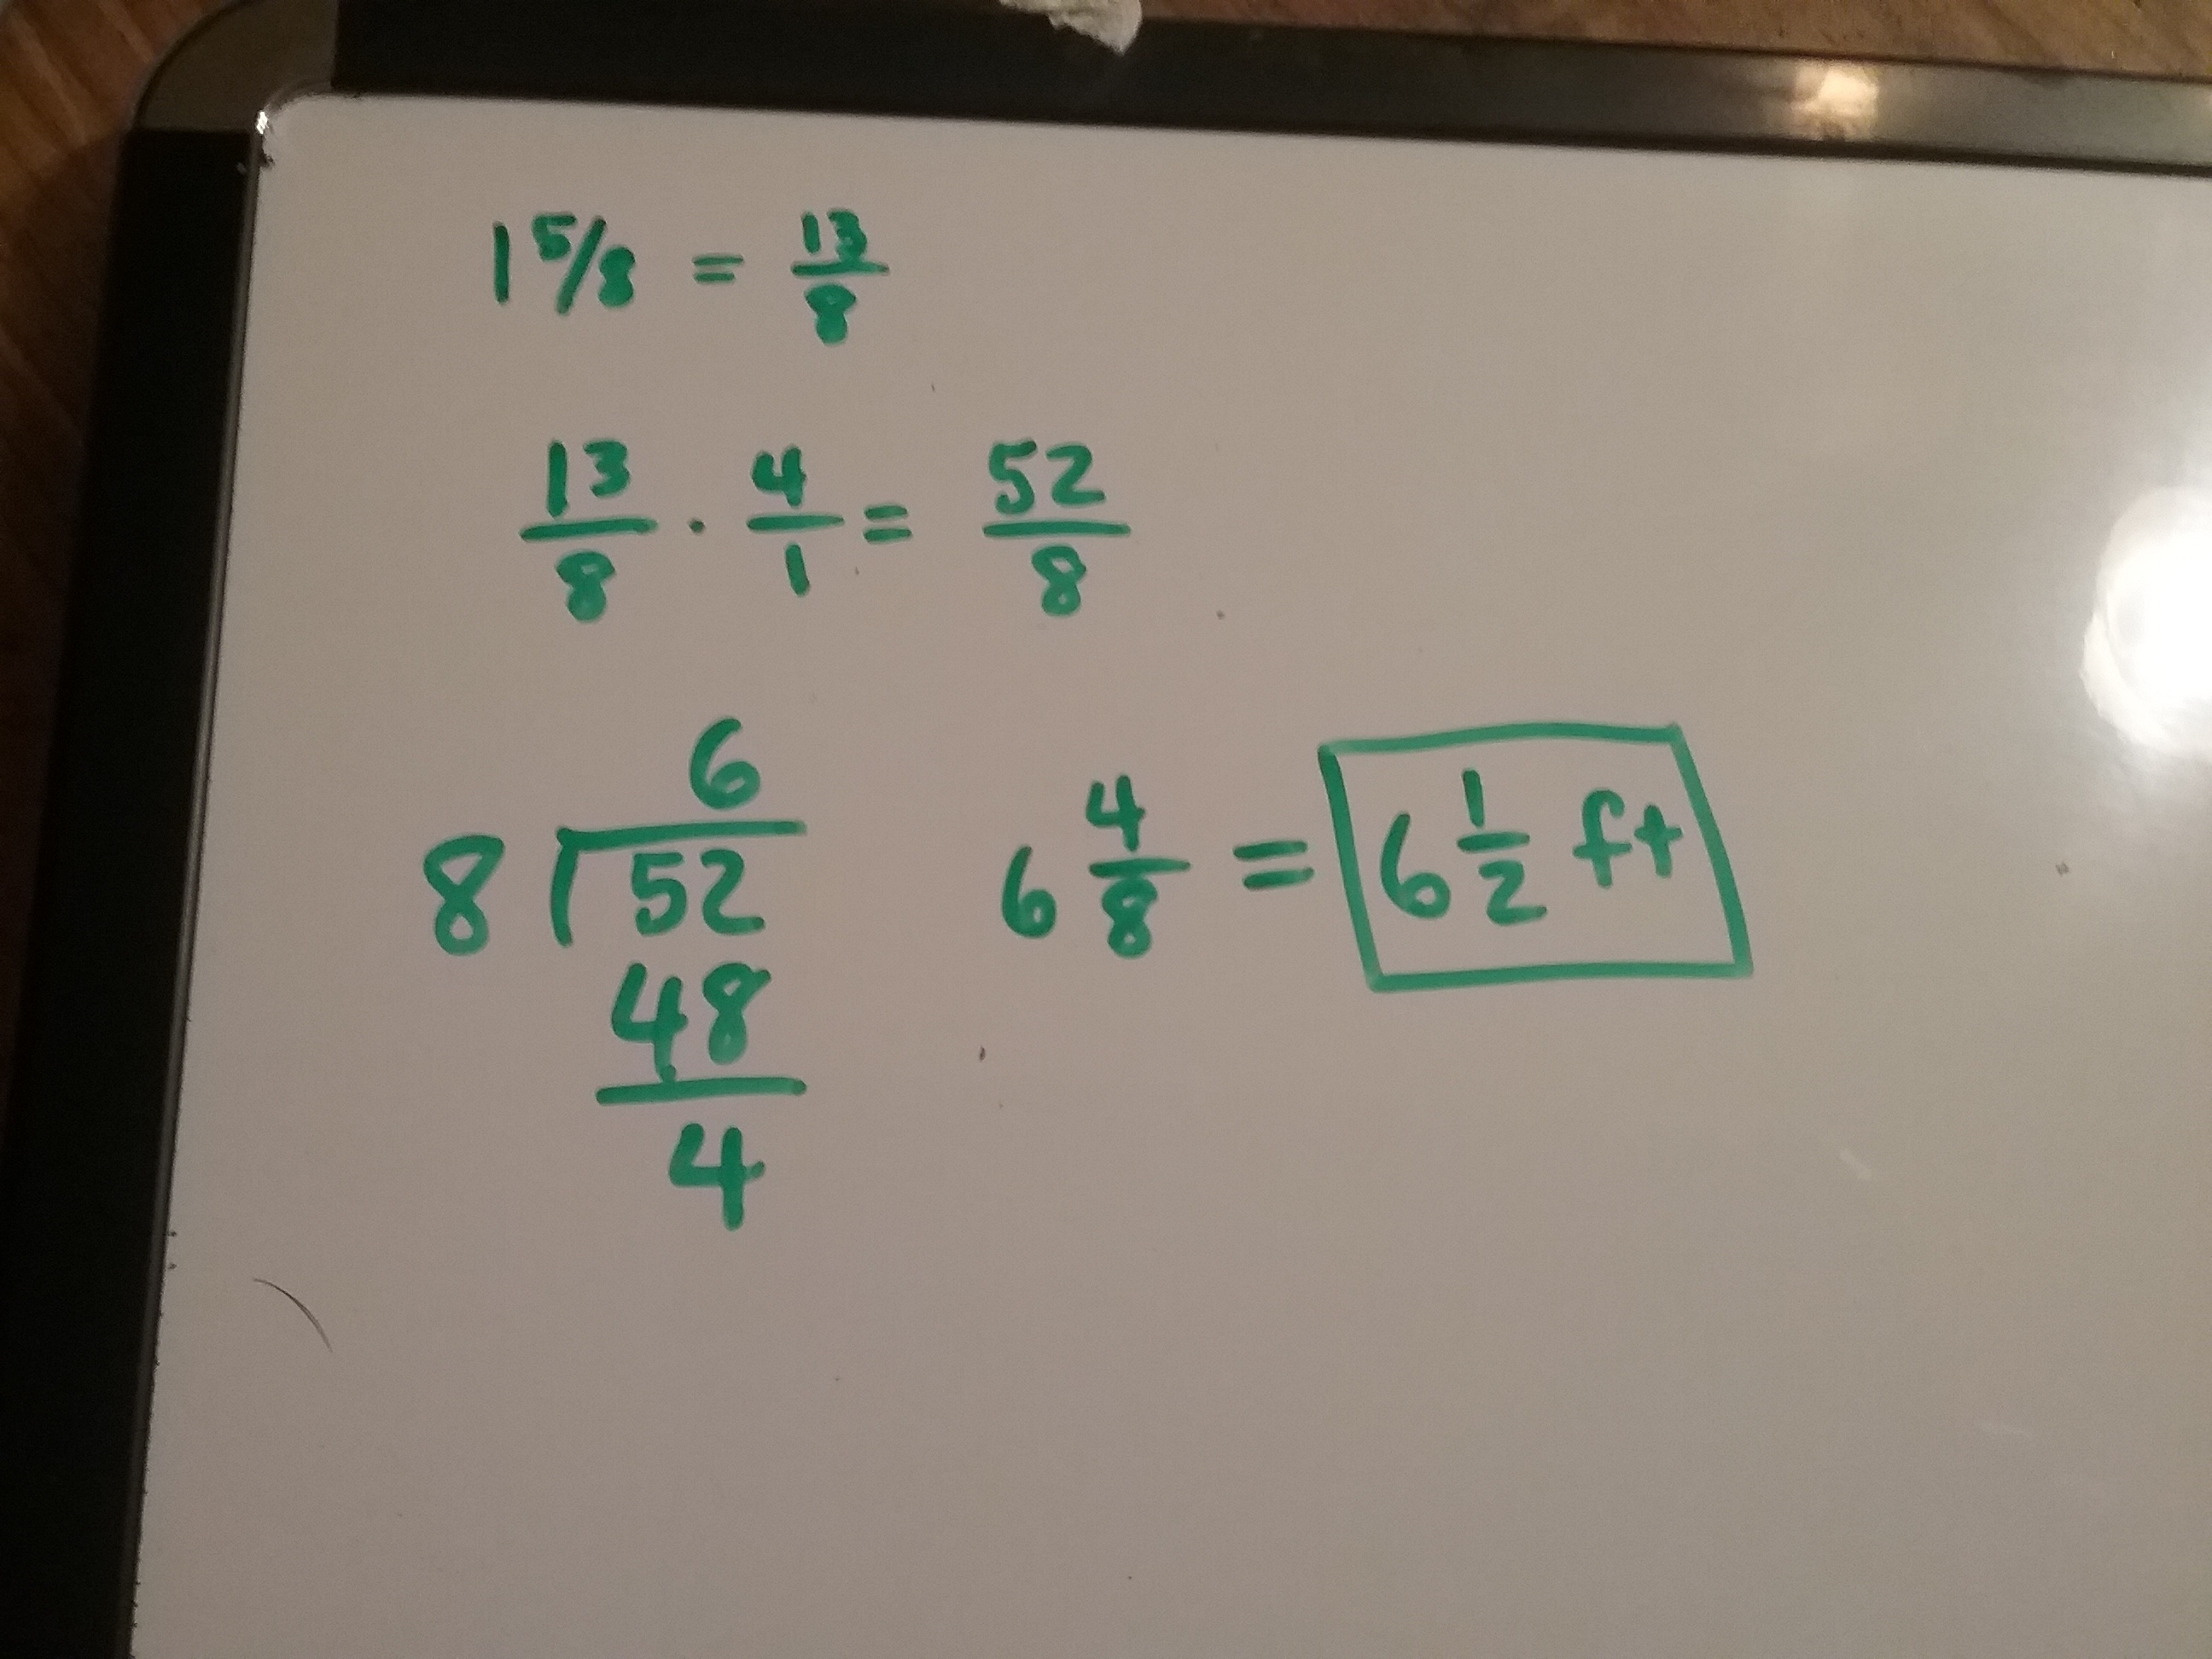 1 5/8 = 13/8
13/8 · 4/1 = 52/8
6
8 52
48
4
6 4/8 = 6 1/2 ft